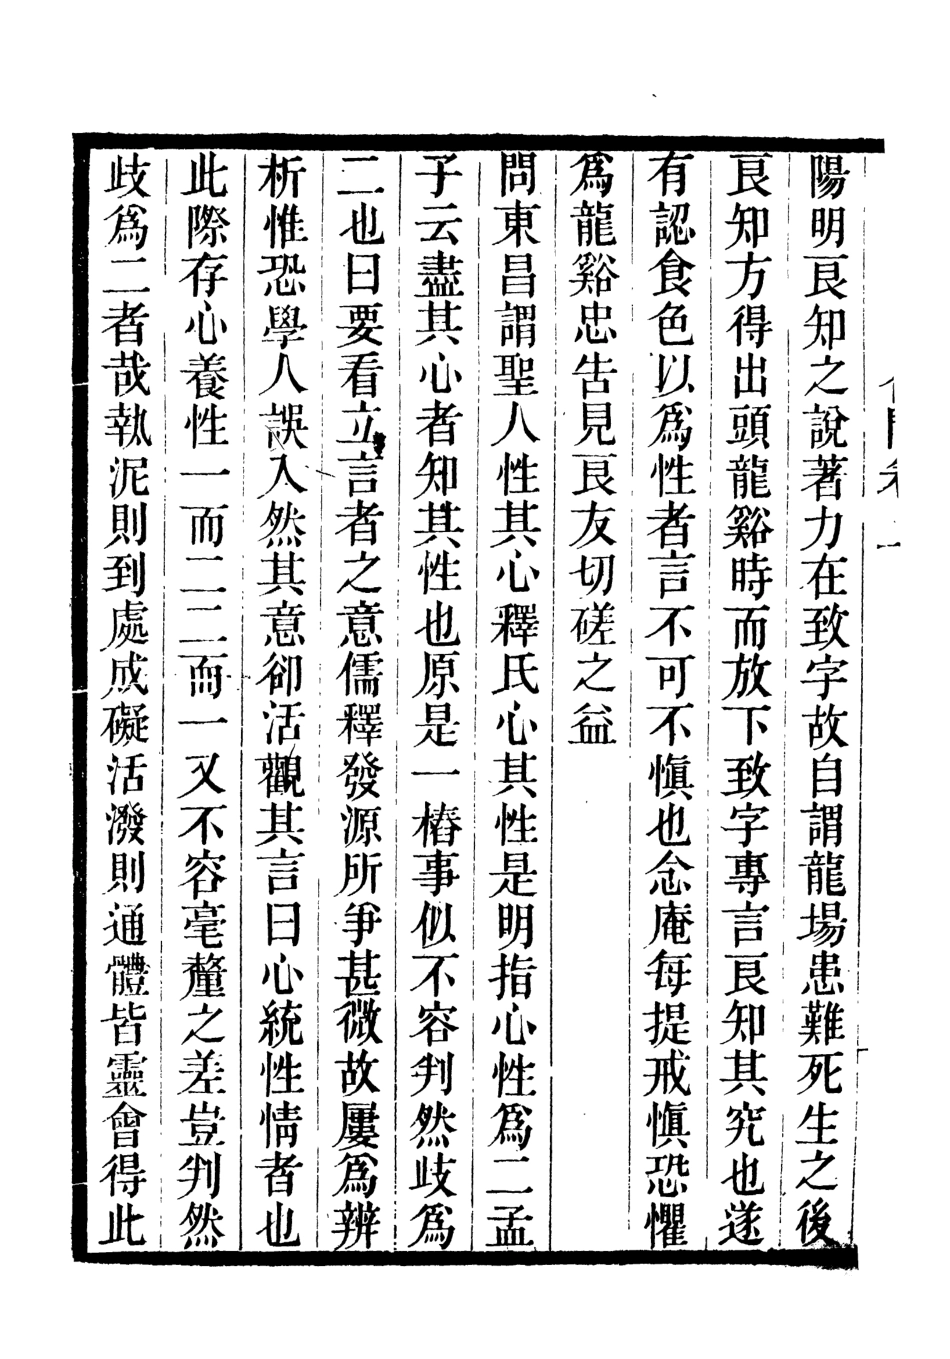 陽明良知之說著力在致字故自謂龍場患難死生之後
良知方得出頭龍谿時而放下致字專言良知其究也遂
有認食色以爲性者言不可不愼也念庵每提戒愼恐懼
爲龍谿忠告見良友切磋之益
問東昌謂聖人性其心釋氏心其性是明指心性爲二孟
子云盡其心者知其性也原是一樁事似不容判然歧爲
二也曰要看立言者之意儒釋發源所爭甚微故屢爲辨
析惟恐學人誤入然其意卻活觀其言曰心統性情者也
此際存心養性一而二二而一又不容毫釐之差豈判然
歧爲二者哉執泥則到處成礙活潑則通體皆靈會得此